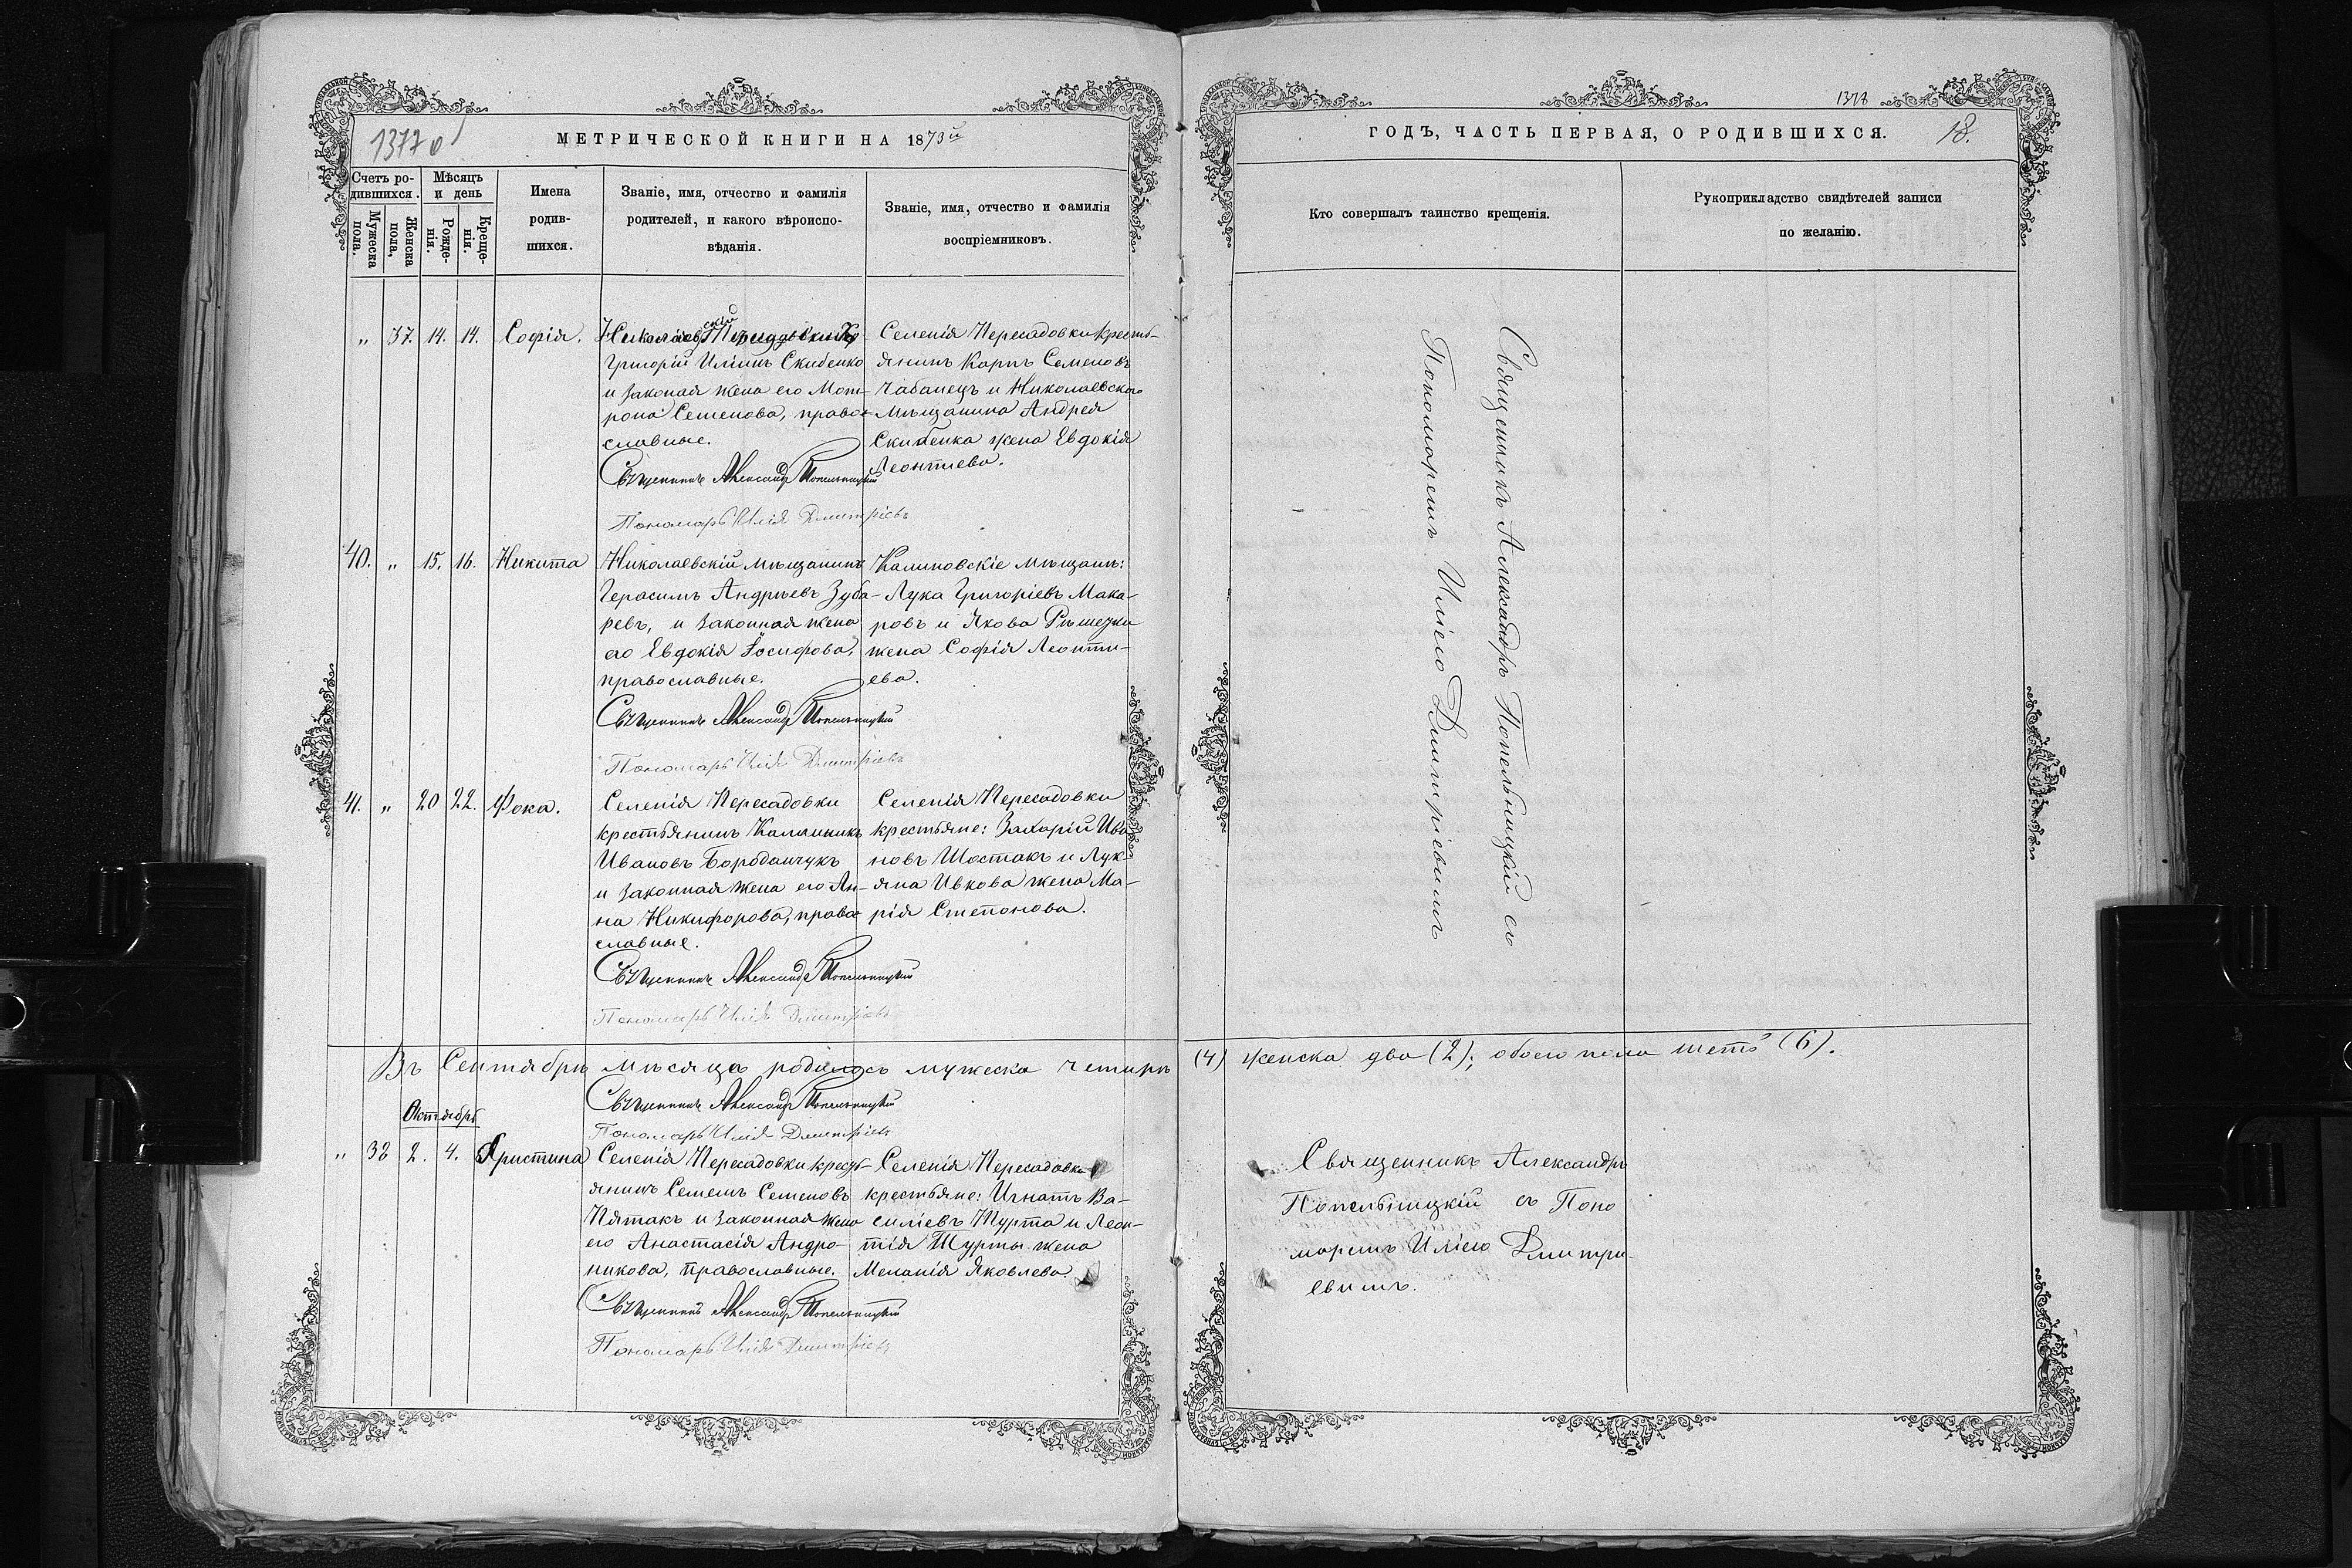 1377 об
МЕТРИЧЕСКОЙ КНИГИ НА 1873й
Счетъ ро-
дившихся.
Мужеска
пола.
Женска
пола.
Мѣсяцъ
и день
Рожде-
нія.
Креще-
нія.
Имена
родив-
шихся.
Званіе, имя, отчество и фамилія
родителей, и какого вѣроиспо-
вѣданія.
Званіе, имя, отчество и фамилія
воспріемниковъ.
„ 37. 14. 14. Софія.
Николаевскій
Григорій Иліинъ Скибенко
и законая жена его Мот-
рона Семенова, право-
славные.
Священникъ Александръ Попельницкій
Пономарь Илія Дмитріевъ
Селенія Пересадовки кресть-
янинъ Карпъ Семеновъ
Чабанецъ и Николаевскаго
мѣщанина Андрея
Скибенка жена Евдокія
Леонтиева.
40. „ 15. 16. Никита
Николаевскій мѣщанинъ
Герасимъ Андрѣевъ Зуба-
ревъ, и законная жена
его Евдокія Іосифова,
православные.
Священникъ Александръ Попельницкій
Пономарь Илія Дмитріевъ
Калиновскіе мѣщане:
Лука Григоріевъ Мака-
ровъ и Якова Рѣшетки
жена Софія Леонти-
ева.
41. „ 20 22. Фока.
Селенія Пересадовки
крестьянинъ Калинникъ
Ивановъ Бородайчукъ
и законная жена его Ан-
на Никифорова, право-
славные.
Священникъ Александръ Попельницкій
Пономарь Илія Дмитріевъ
Селенія Пересадовки
крестьяне: Захарій Ива-
новъ Шостакъ и Лук-
яна Ивкова жена Ма-
рія Степонова.
Въ Сентябрѣ мѣсяцѣ родилось мужеска четыре (4) женска два (2); обоего пола шеть (6).
Священникъ Александръ Попельницкій
Пономарь Илія Дмитріевъ
Октябрь
„ 38 2. 4. Христина
Селенія Пересадовки кресть-
янинъ Семенъ Семеновъ
Пятакъ и законная жена
его Анастасія Андро-
никова, православные.
Священникъ Александръ Попельницкій
Пономарь Илія Дмитріевъ
Селенія Пересадовки
крестьяне: Игнатъ Ва-
силіевъ Шурта и Леон-
тія Шурты жена
Меланія Яковлева.
1378
ГОДЪ, ЧАСТЬ ПЕРВАЯ, О РОДИВШИХСЯ.
18.
Кто совершалъ таинство крещенія.
Рукоприкладство свидѣтелей записи
по желанію.
Священникъ Александръ Попельницкій съ
Пономоремъ Иліею Дмитріевимъ
Священникъ Александръ
Попельницкій съ Поно
моремъ Иліею Дмитри-
евимъ.